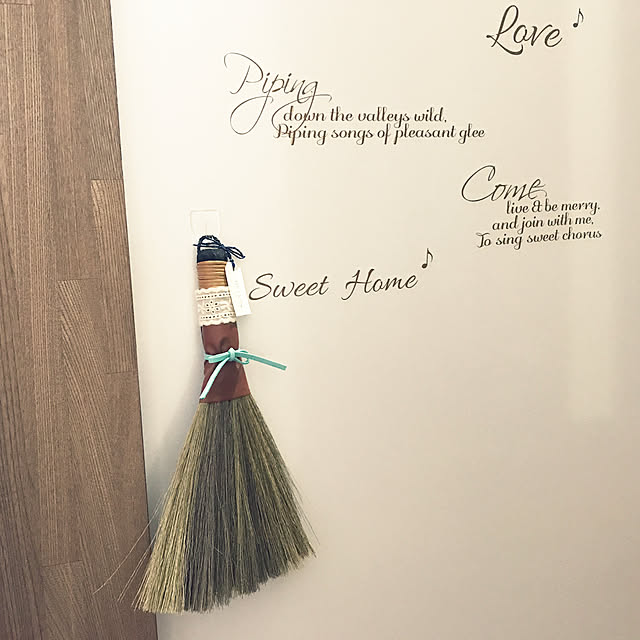 Love
Piping
down the valleys wild,
Piping songs of pleasant glee
Come
live & be merry,
and join with me,
To sing sweet chorus
Sweet Home